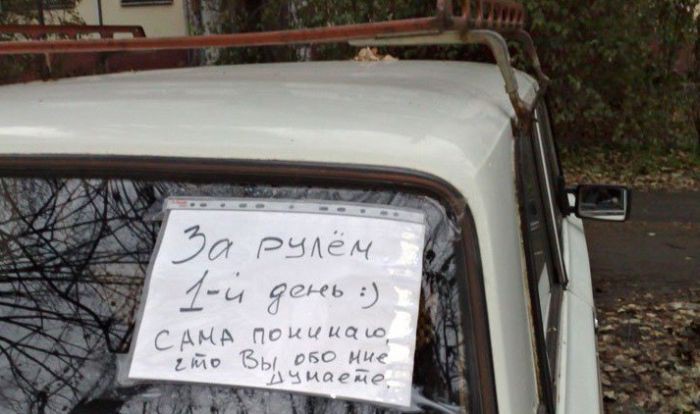 За рулём
1-й день :)
САМА понимаю,
что Вы обо мне
думаете.